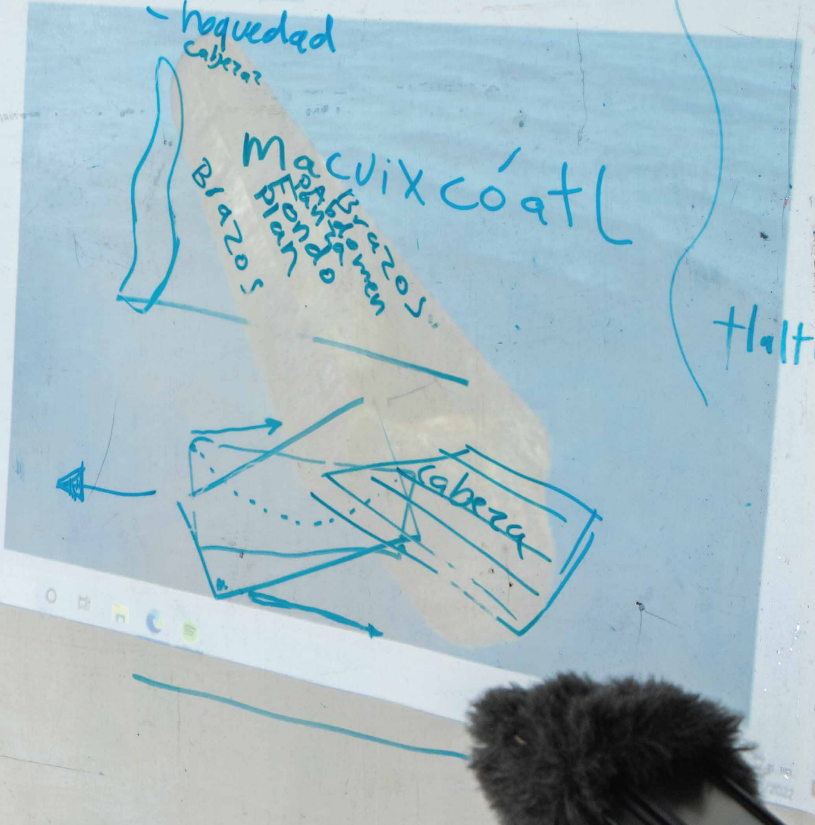 - hoquedad
cabezas
Macuixcóatl
Brazos
Brazos
Abdomen
Fondo
plan
cabeza
tlalt
/2022